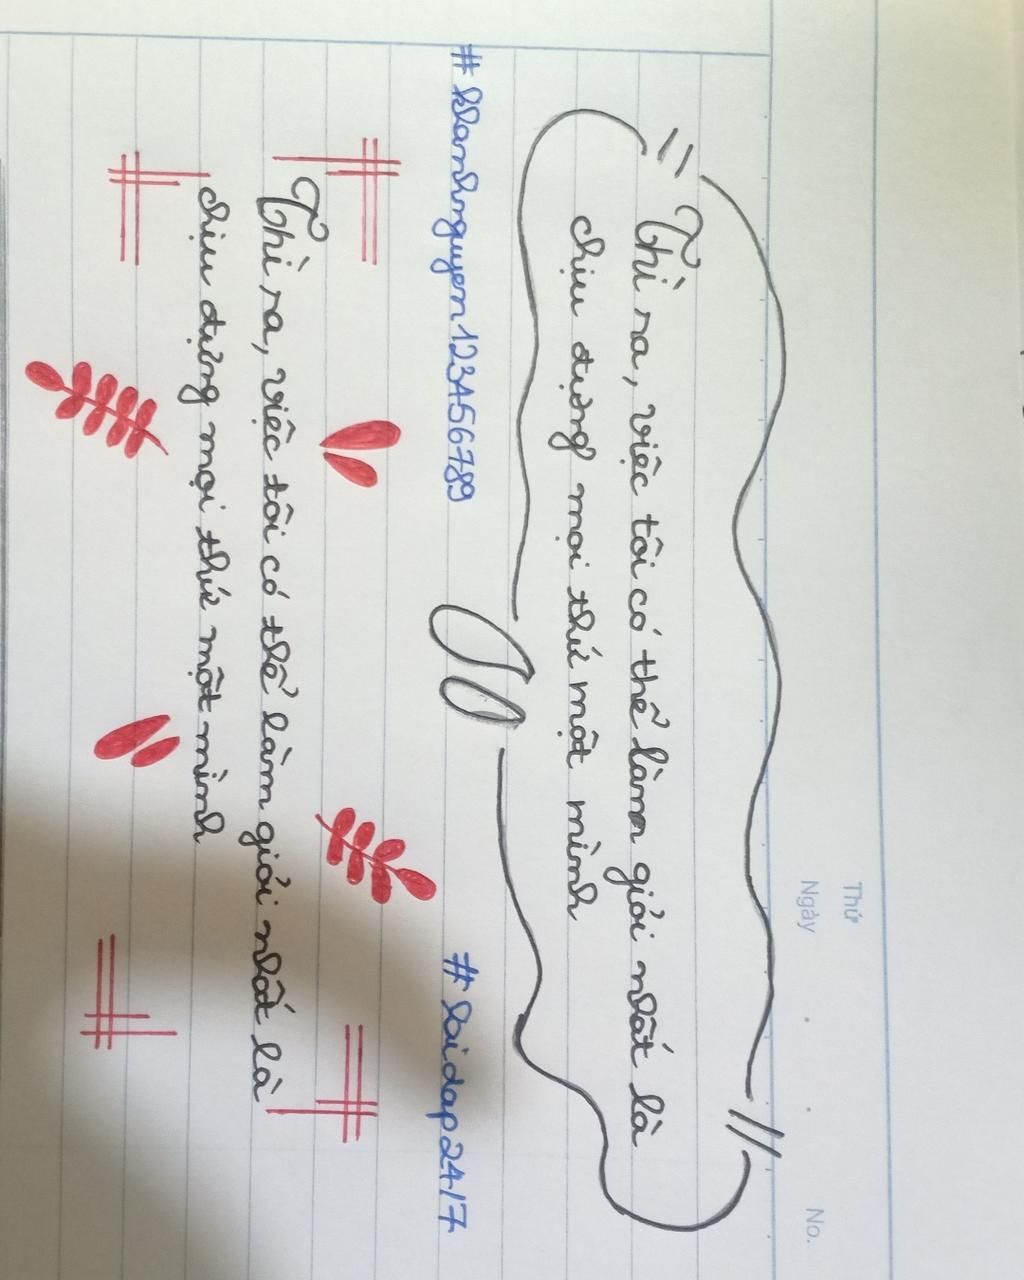 Thứ
Ngày
No.
Thì ra, việc tôi có thể làm giỏi nhất là
chịu đựng mọi thứ một mình
#khanhnguyen123456789
#hoidap24/7
Thì ra, việc tôi có thể làm giỏi nhất là
chịu đựng mọi thứ một mình